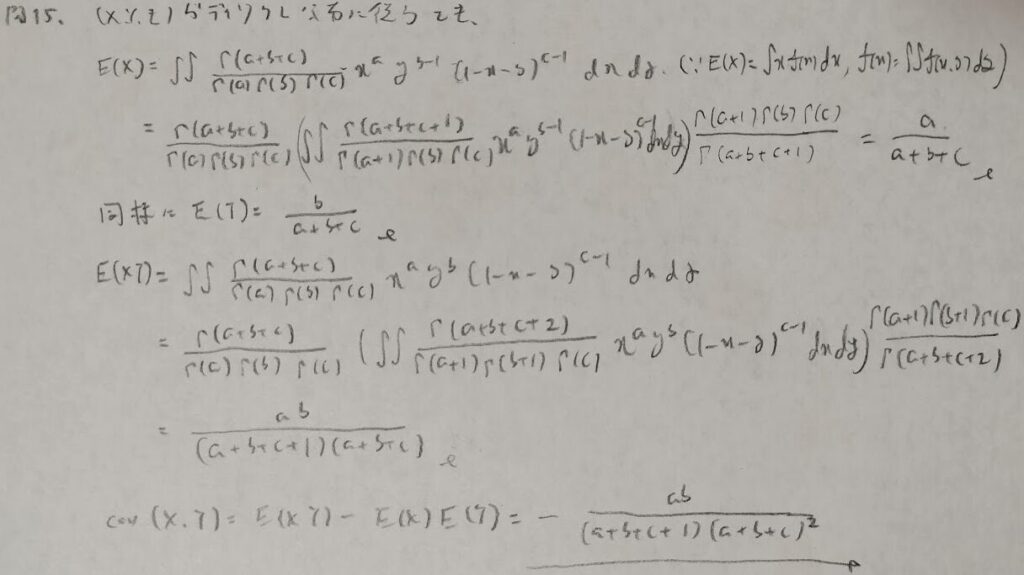 問15. (X.Y.Z)がディリクレ分布に従うとき、
E(X)= ∬ Γ(a+b+c)/Γ(a)Γ(b)Γ(c) x^a y^{b-1} (1-x-y)^{c-1} dxdy. (∵E(X)=∫xf(x)dx, f(x)=∫f(x,y)dy)
= Γ(a+b+c)/Γ(a)Γ(b)Γ(c) (∬ Γ(a+b+c+1)/Γ(a+1)Γ(b)Γ(c) x^a y^{b-1} (1-x-y)^{c-1} dxdy) Γ(a+1)Γ(b)Γ(c)/Γ(a+b+c+1) = a/a+b+c
同様に E(Y)= b/a+b+c
E(XY)= ∬ Γ(a+b+c)/Γ(a)Γ(b)Γ(c) x^a y^b (1-x-y)^{c-1} dxdy
= Γ(a+b+c)/Γ(a)Γ(b)Γ(c) (∬ Γ(a+b+c+2)/Γ(a+1)Γ(b+1)Γ(c) x^a y^b (1-x-y)^{c-1} dxdy) Γ(a+1)Γ(b+1)Γ(c)/Γ(a+b+c+2)
= ab/(a+b+c+1)(a+b+c)
cov(X.Y)= E(XY)- E(X)E(Y)= - ab/(a+b+c+1)(a+b+c)^2